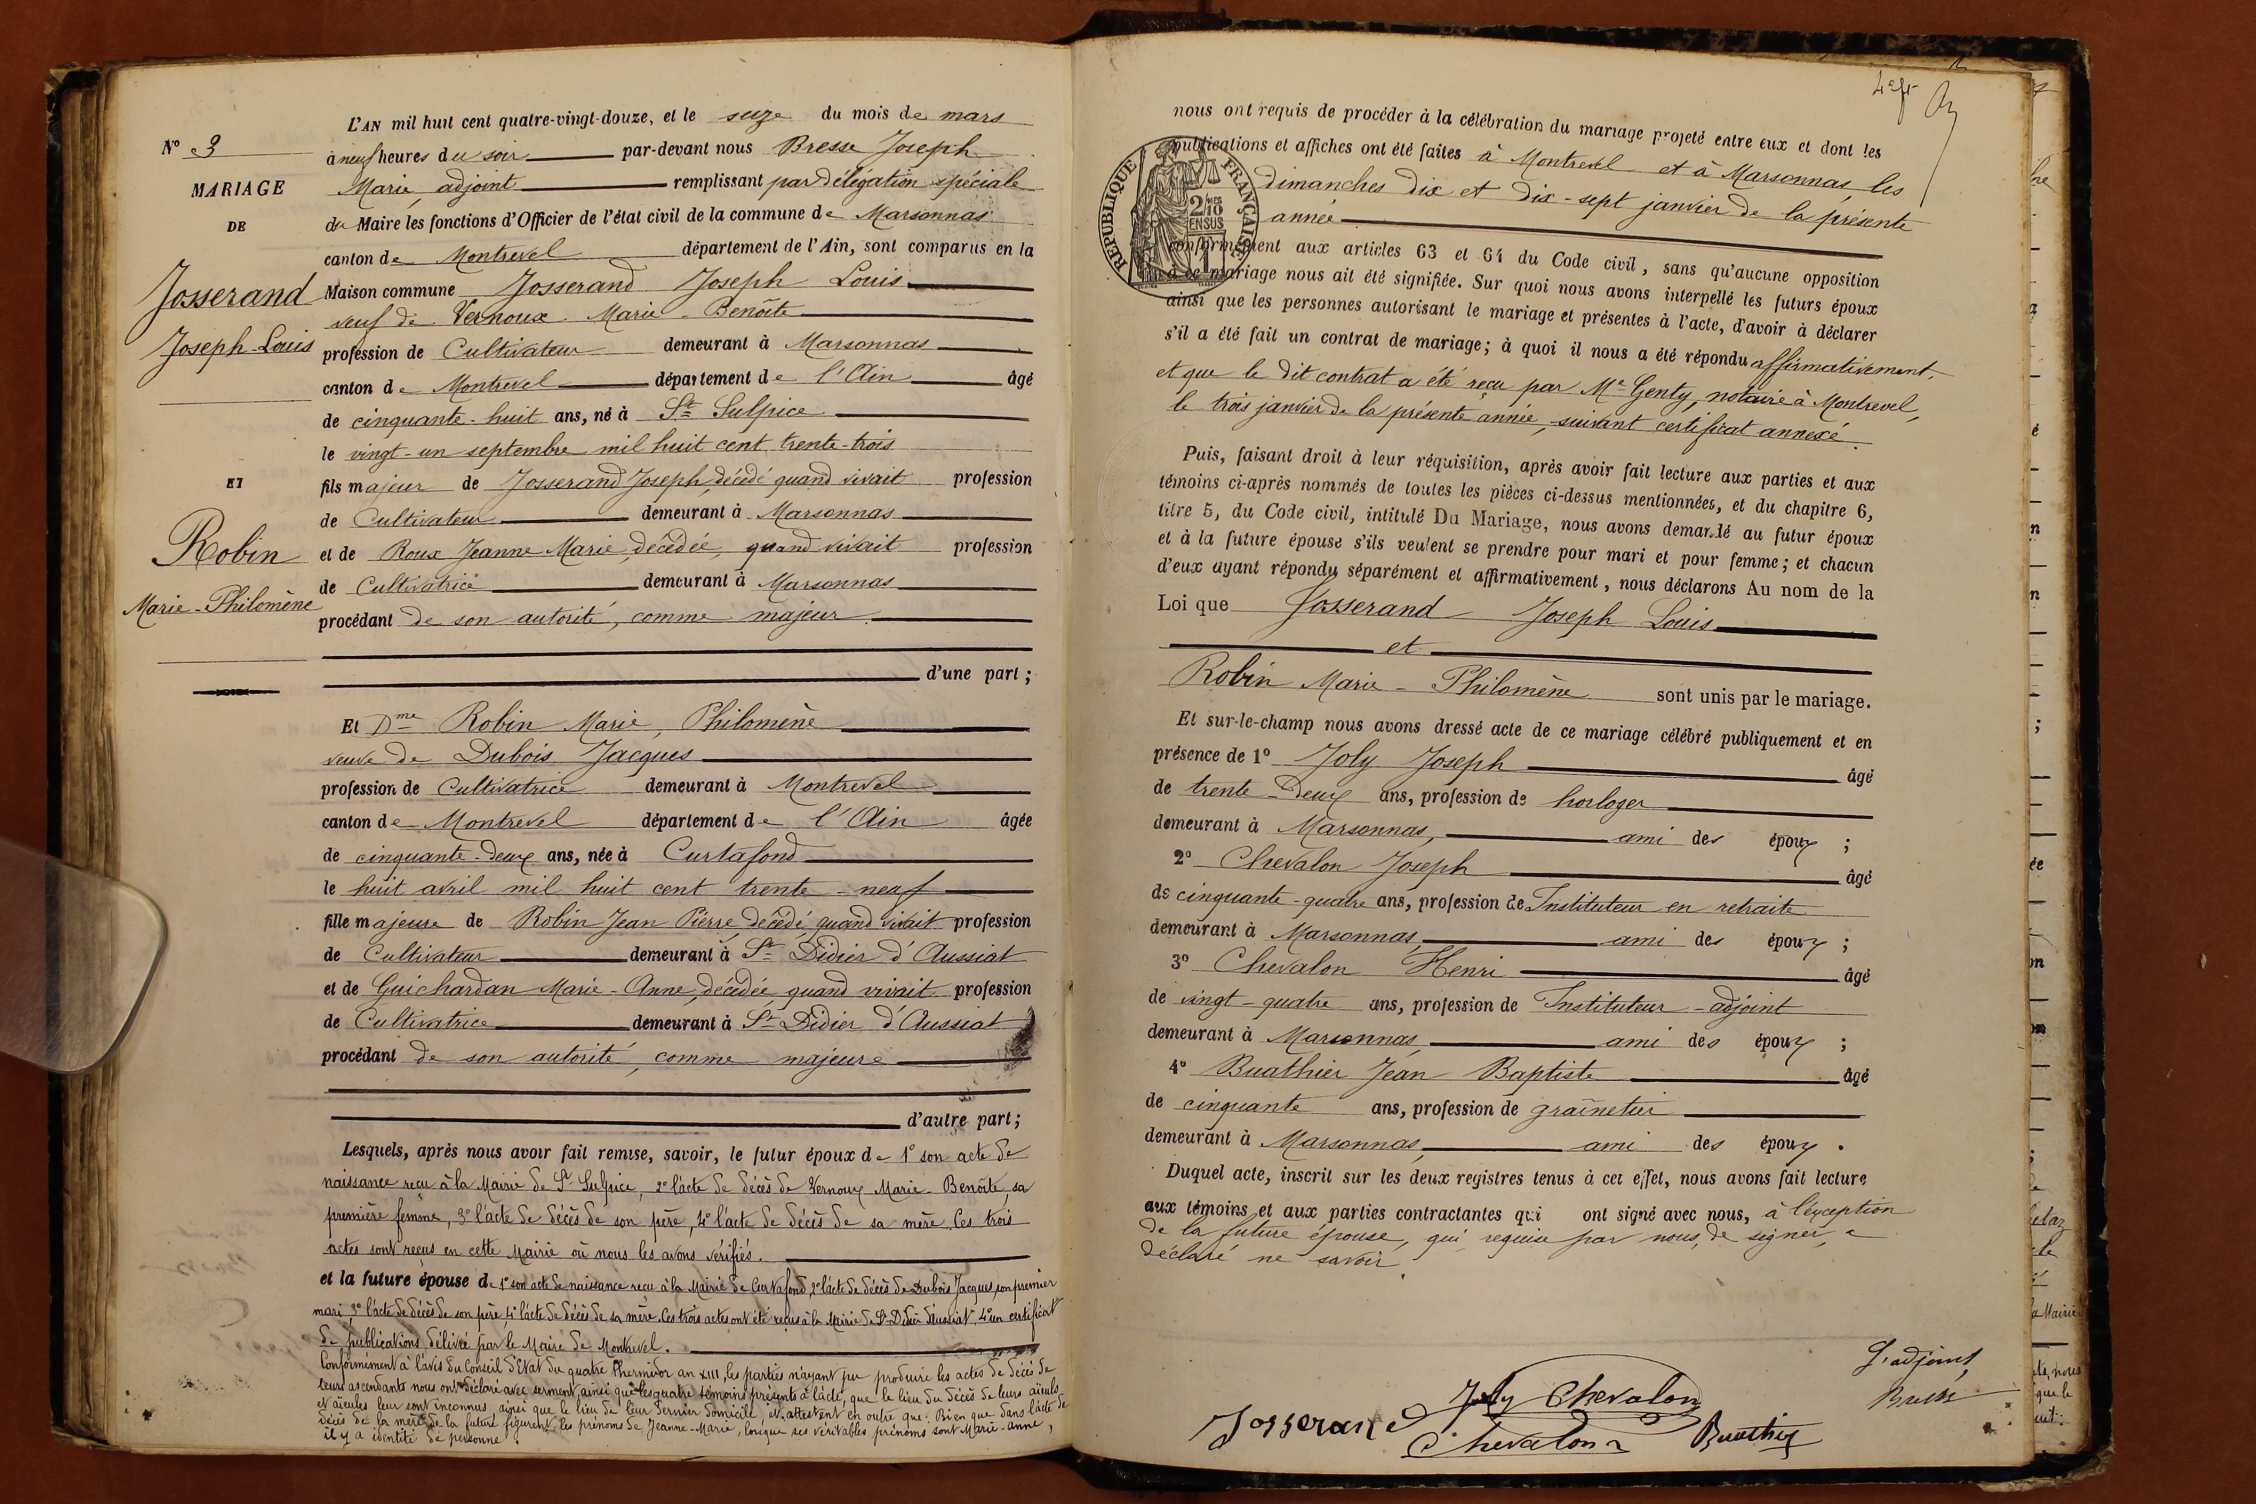 L'AN mil huit cent quatre-vingt-douze, et le seize du mois de mars
N° 3
à neuf heures du soir par-devant nous Bresse Joseph
MARIAGE
Marie, adjoint remplissant par délégation spéciale
DE
du Maire les fonctions d'Officier de l'état civil de la commune de Marsonnas
canton de Montrevel département de l'Ain, sont comparus en la
Josserand
Maison commune Josserand Joseph Louis
veuf de Vernoux Marie-Benoîte
Joseph-Louis
profession de Cultivateur demeurant à Marsonnas
canton de Montrevel département de l'Ain âgé
de cinquante-huit ans, né à St Sulpice
le vingt-un septembre mil huit cent trente-trois
ET
fils majeur de Josserand Joseph, décédé quand vivait profession
de Cultivateur demeurant à Marsonnas
Robin
et de Roux Jeanne Marie, décédée, quand vivait profession
de Cultivatrice demeurant à Marsonnas
Marie-Philomène
procédant de son autorité, comme majeur
d'une part;
Et Dme Robin Marie, Philomène
veuve de Dubois Jacques
profession de Cultivatrice demeurant à Montrevel
canton de Montrevel département de l'Ain âgée
de cinquante-deux ans, née à Curtafond
le huit avril mil huit cent trente-neuf
fille majeure de Robin Jean Pierre, décédé, quand vivait profession
de Cultivateur demeurant à St Didier d'Aussiat
et de Guichardan Marie-Anne, décédée, quand vivait profession
de Cultivatrice demeurant à St Didier d'Aussiat
procédant de son autorité, comme majeure
d'autre part;
Lesquels, après nous avoir fait remise, savoir, le futur époux de 1° son acte de
naissance reçu à la Mairie de St Sulpice, 2° l'acte de décès de Vernoux Marie-Benoîte, sa
première femme, 3° l'acte de décès de son père, 4° l'acte de décès de sa mère. Ces trois
actes sont reçus en cette Mairie où nous les avons vérifiés.
et la future épouse de 1° son acte de naissance reçu à la Mairie de Curtafond, 2° l'acte de décès de Dubois Jacques, son premier
mari, 3° l'acte de décès de son père, 4° l'acte de décès de sa mère. Ces trois actes ont été reçus à la Mairie de St Didier d'Aussiat, 4° un certificat
de publications délivré par le Maire de Montrevel.
Conformément à l'avis du Conseil d'Etat du quatre thermidor an XIII, les parties n'ayant pu produire les actes de décès de
leurs ascendants nous ont déclaré avec serment, ainsi que les quatre témoins présents à l'acte, que le lieu du décès de leurs aïeuls
et aïeules leur sont inconnus ainsi que le lieu de leur dernier domicile, et attestent en outre que: Bien que dans l'acte de
décès de la mère de la future figurent les prénoms de Jeanne-Marie, lorsque ses véritables prénoms sont Marie-Anne,
il y a identité de personne.
nous ont requis de procéder à la célébration du mariage projeté entre eux et dont les
publications et affiches ont été faites à Montrevel et à Marsonnas les
dimanches dix et dix-sept janvier de la présente
année
RÉPUBLIQUE FRANÇAISE
2/10 EN SUS
conformément aux articles 63 et 64 du Code civil, sans qu'aucune opposition
à ce mariage nous ait été signifiée. Sur quoi nous avons interpellé les futurs époux
ainsi que les personnes autorisant le mariage et présentes à l'acte, d'avoir à déclarer
s'il a été fait un contrat de mariage; à quoi il nous a été répondu affirmativement,
et que le dit contrat a été reçu par Me Genty, notaire à Montrevel,
le trois janvier de la présente année, suivant certificat annexé.
Puis, faisant droit à leur réquisition, après avoir fait lecture aux parties et aux
témoins ci-après nommés de toutes les pièces ci-dessus mentionnées, et du chapitre 6,
titre 5, du Code civil, intitulé Du Mariage, nous avons demandé au futur époux
et à la future épouse s'ils veulent se prendre pour mari et pour femme; et chacun
d'eux ayant répondu séparément et affirmativement, nous déclarons Au nom de la
Loi que Josserand Joseph Louis
et
Robin Marie-Philomène sont unis par le mariage.
Et sur-le-champ nous avons dressé acte de ce mariage célébré publiquement et en
présence de 1° Joly Joseph âgé
de trente-deux ans, profession de horloger
demeurant à Marsonnas, ami des époux;
2° Chevalon Joseph âgé
de cinquante-quatre ans, profession de Instituteur en retraite
demeurant à Marsonnas, ami des époux;
3° Chevalon Henri âgé
de vingt-quatre ans, profession de Instituteur-adjoint
demeurant à Marsonnas, ami des époux;
4° Buathier Jean Baptiste âgé
de cinquante ans, profession de grainetier
demeurant à Marsonnas, ami des époux.
Duquel acte, inscrit sur les deux registres tenus à cet effet, nous avons fait lecture
aux témoins et aux parties contractantes qui ont signé avec nous, à l'exception
de la future épouse, qui, requise par nous, de signer, a
déclaré ne savoir.
L'adjoint,
Bresse
Joly Chevalon
Josserand
Chevalon Buathier